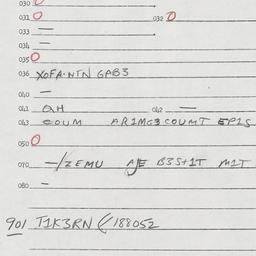 030 0
031 0 032 0
033 —
034 —
035 0
036 XOFA·NTN GPB3
040 —
041 QH 042 —
043 COUM AR1MG3COUMT EP1S
050 0
070 —/ZEMU AJE B3S+1T M1T
080 —
901 T1K3RN 188052